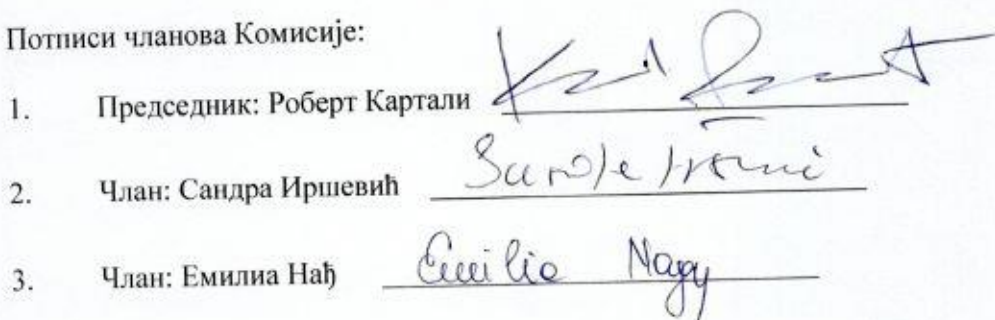 Потписи чланова Комисије:
1. Председник: Роберт Картали
2. Члан: Сандра Иршевић
3. Члан: Емилиа Нађ Emilia Nagy